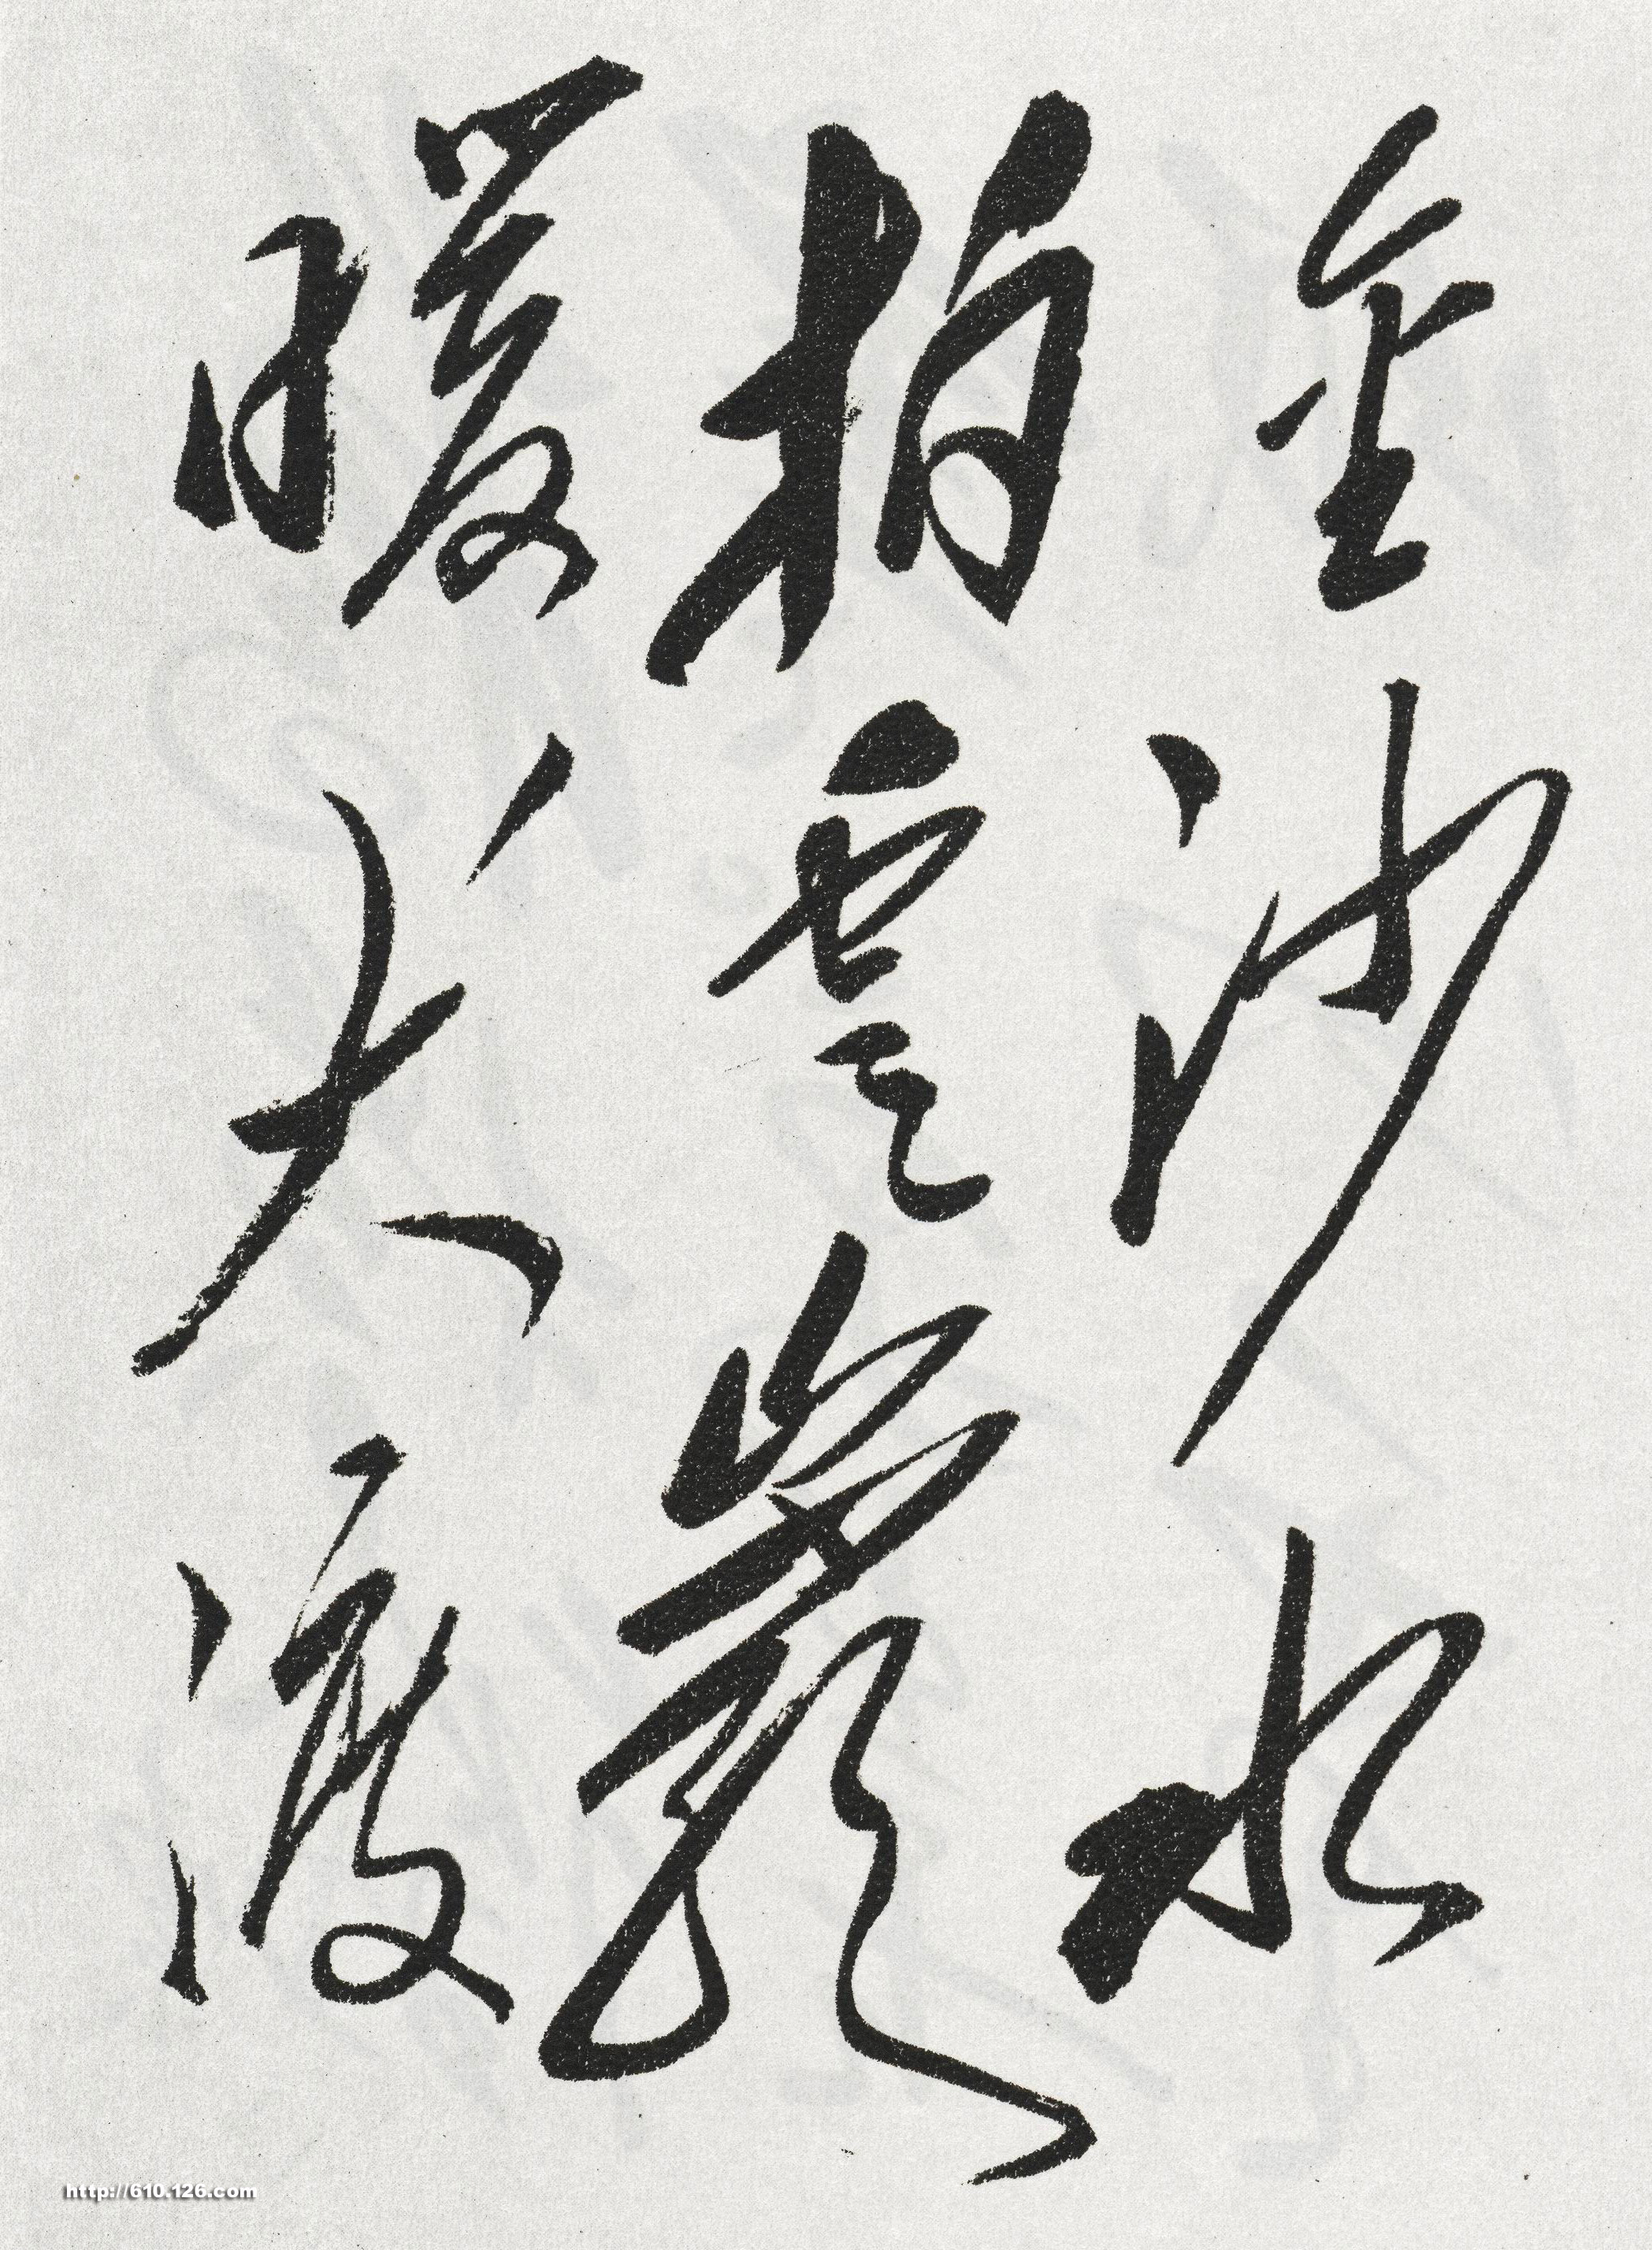 金沙水
拍雲崖
暖大渡
http://610.126.com